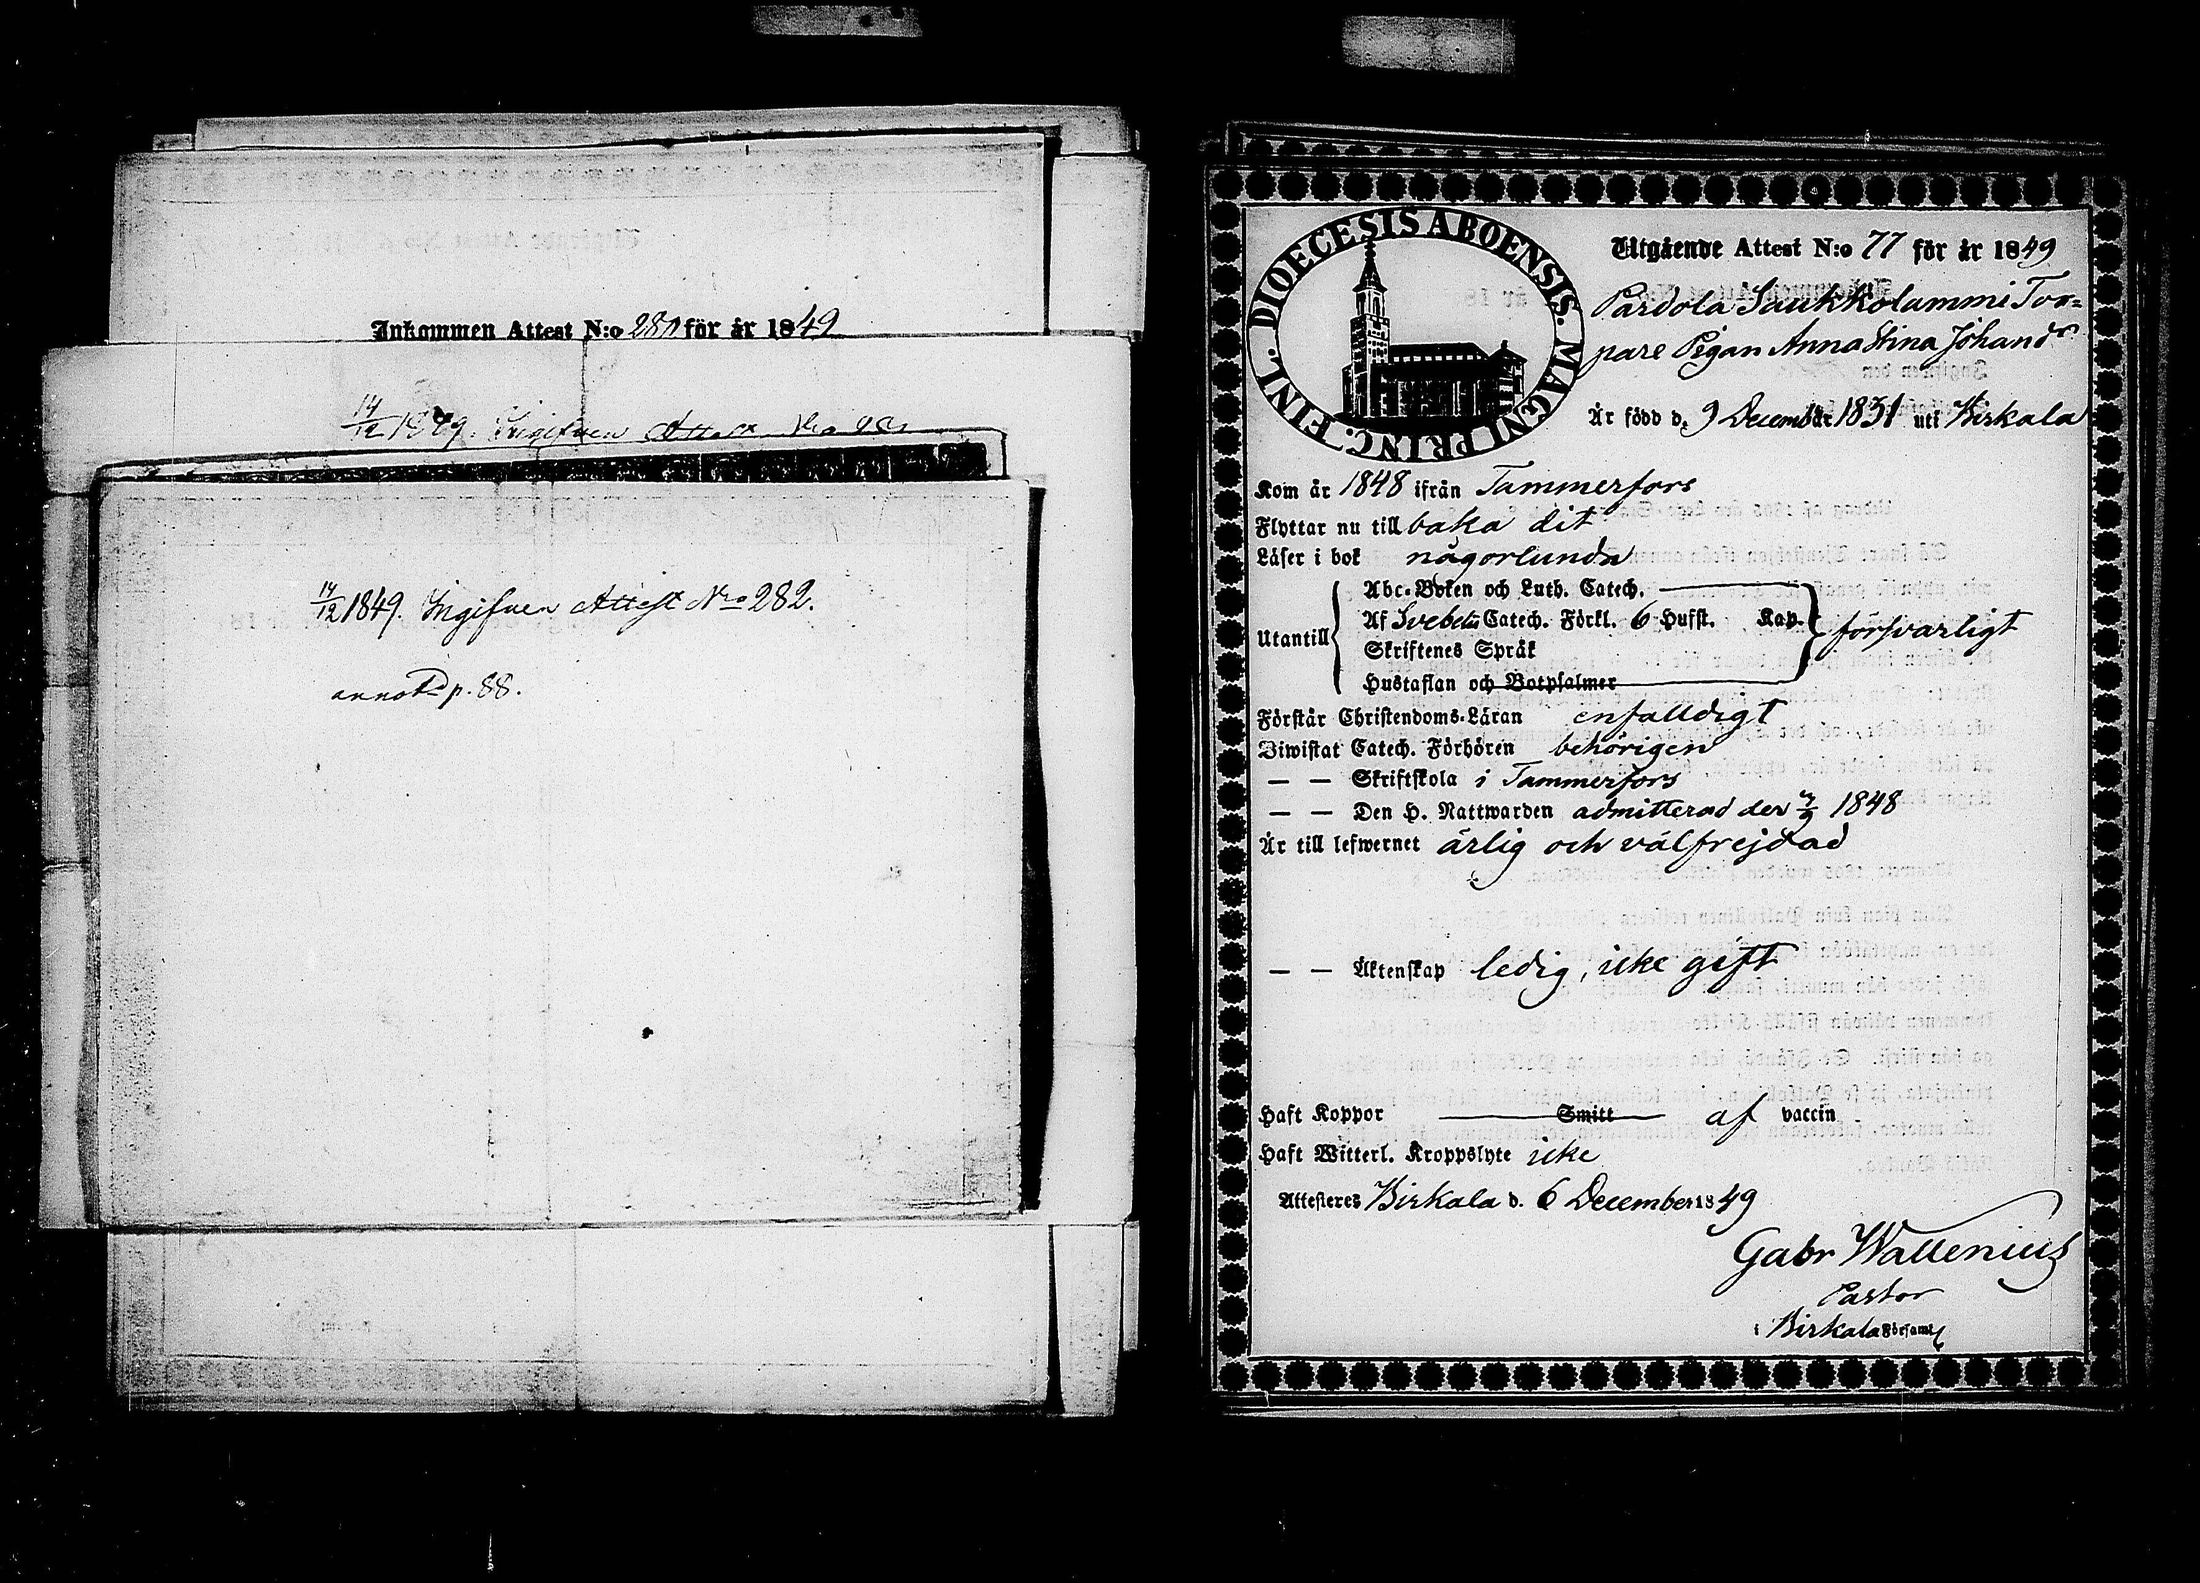 Inkommen Attest N:o 280 för år 1849
14/12 1849. Ingifven Attest No 281
14/12 1849. Ingifven Attest No 282.
annot. p. 88.
DIOECESIS ABOENSIS. MAGNI PRINC. FINL.
Utgående Attest N:o 77 för år 1849
Pardola Saukkolammi Tor=
pare Pigan Anna Stina Johandr
Är född d. 9 Decemb är 1831 uti Birkala
Kom år 1848 ifrån Tammerfors
Flyttar nu till baka dit
Läser i bok någorlunda
Utantill
Abc-Boken och Luth. Catech.
Af Svebelii Catech. Förkl. 6 Hufst. Kap.
Skriftenes Språk
Hustaflan och Botpsalmer
försvarligt
Förstår Christendoms-Läran enfalldigt
Biwistat Catech. Förhören behörigen
— — Skriftskola i Tammerfors
— — Den H. Nattwarden admitterad den 3/9 1848
Är till lefwernet ärlig och välfrejdad
— — Äktenskap ledig, icke gift
Haft Koppor Smitt af vaccin
Haft Witterl. Kroppslyte icke
Attesteres Birkala d. 6 December 1849
Gabr Wallenius
Pastor
i Birkala Församl